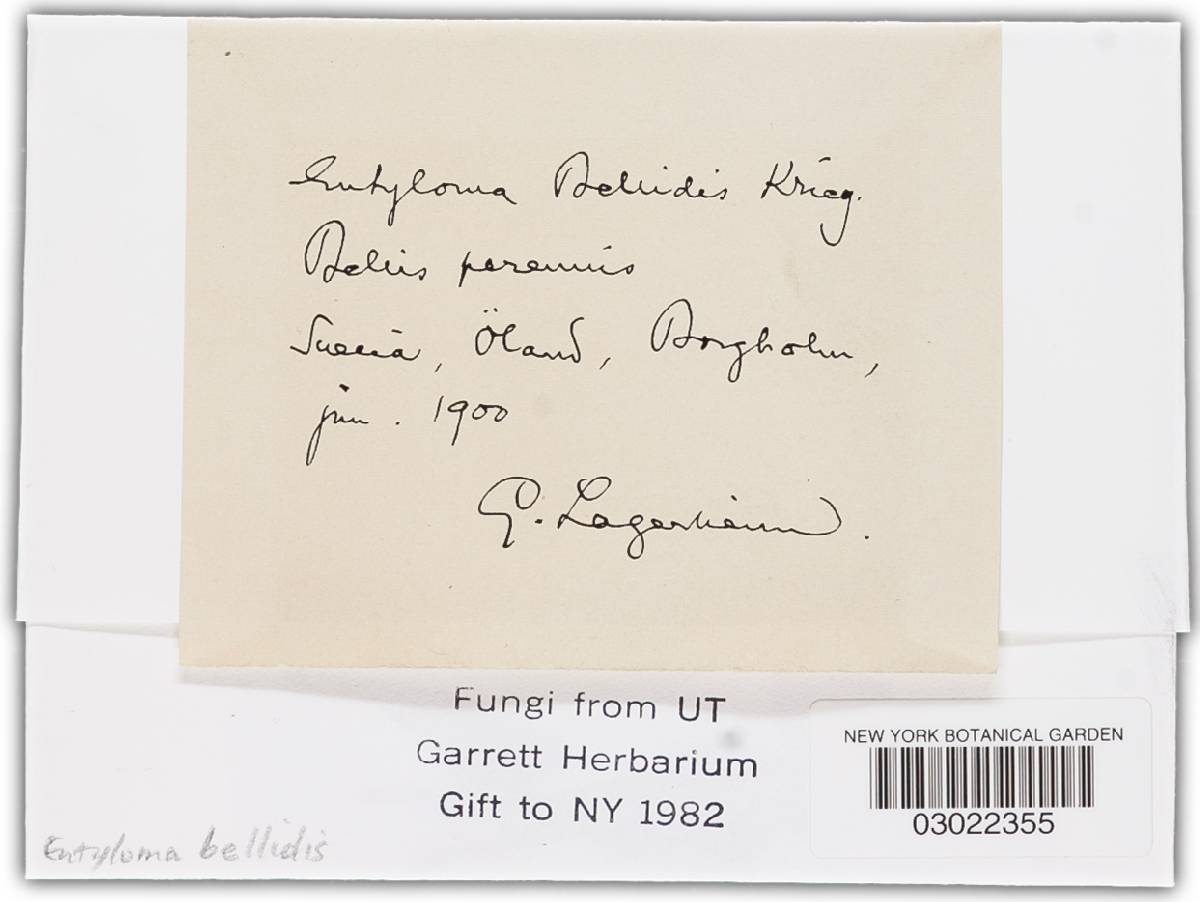 Entyloma Bellidis Krieg.
Bellis perennis
Suecia, Öland, Borgholm,
jun. 1900
G. Lagerheim.
Fungi from UT
Garrett Herbarium
Gift to NY 1982
NEW YORK BOTANICAL GARDEN
03022355
Entyloma bellidis